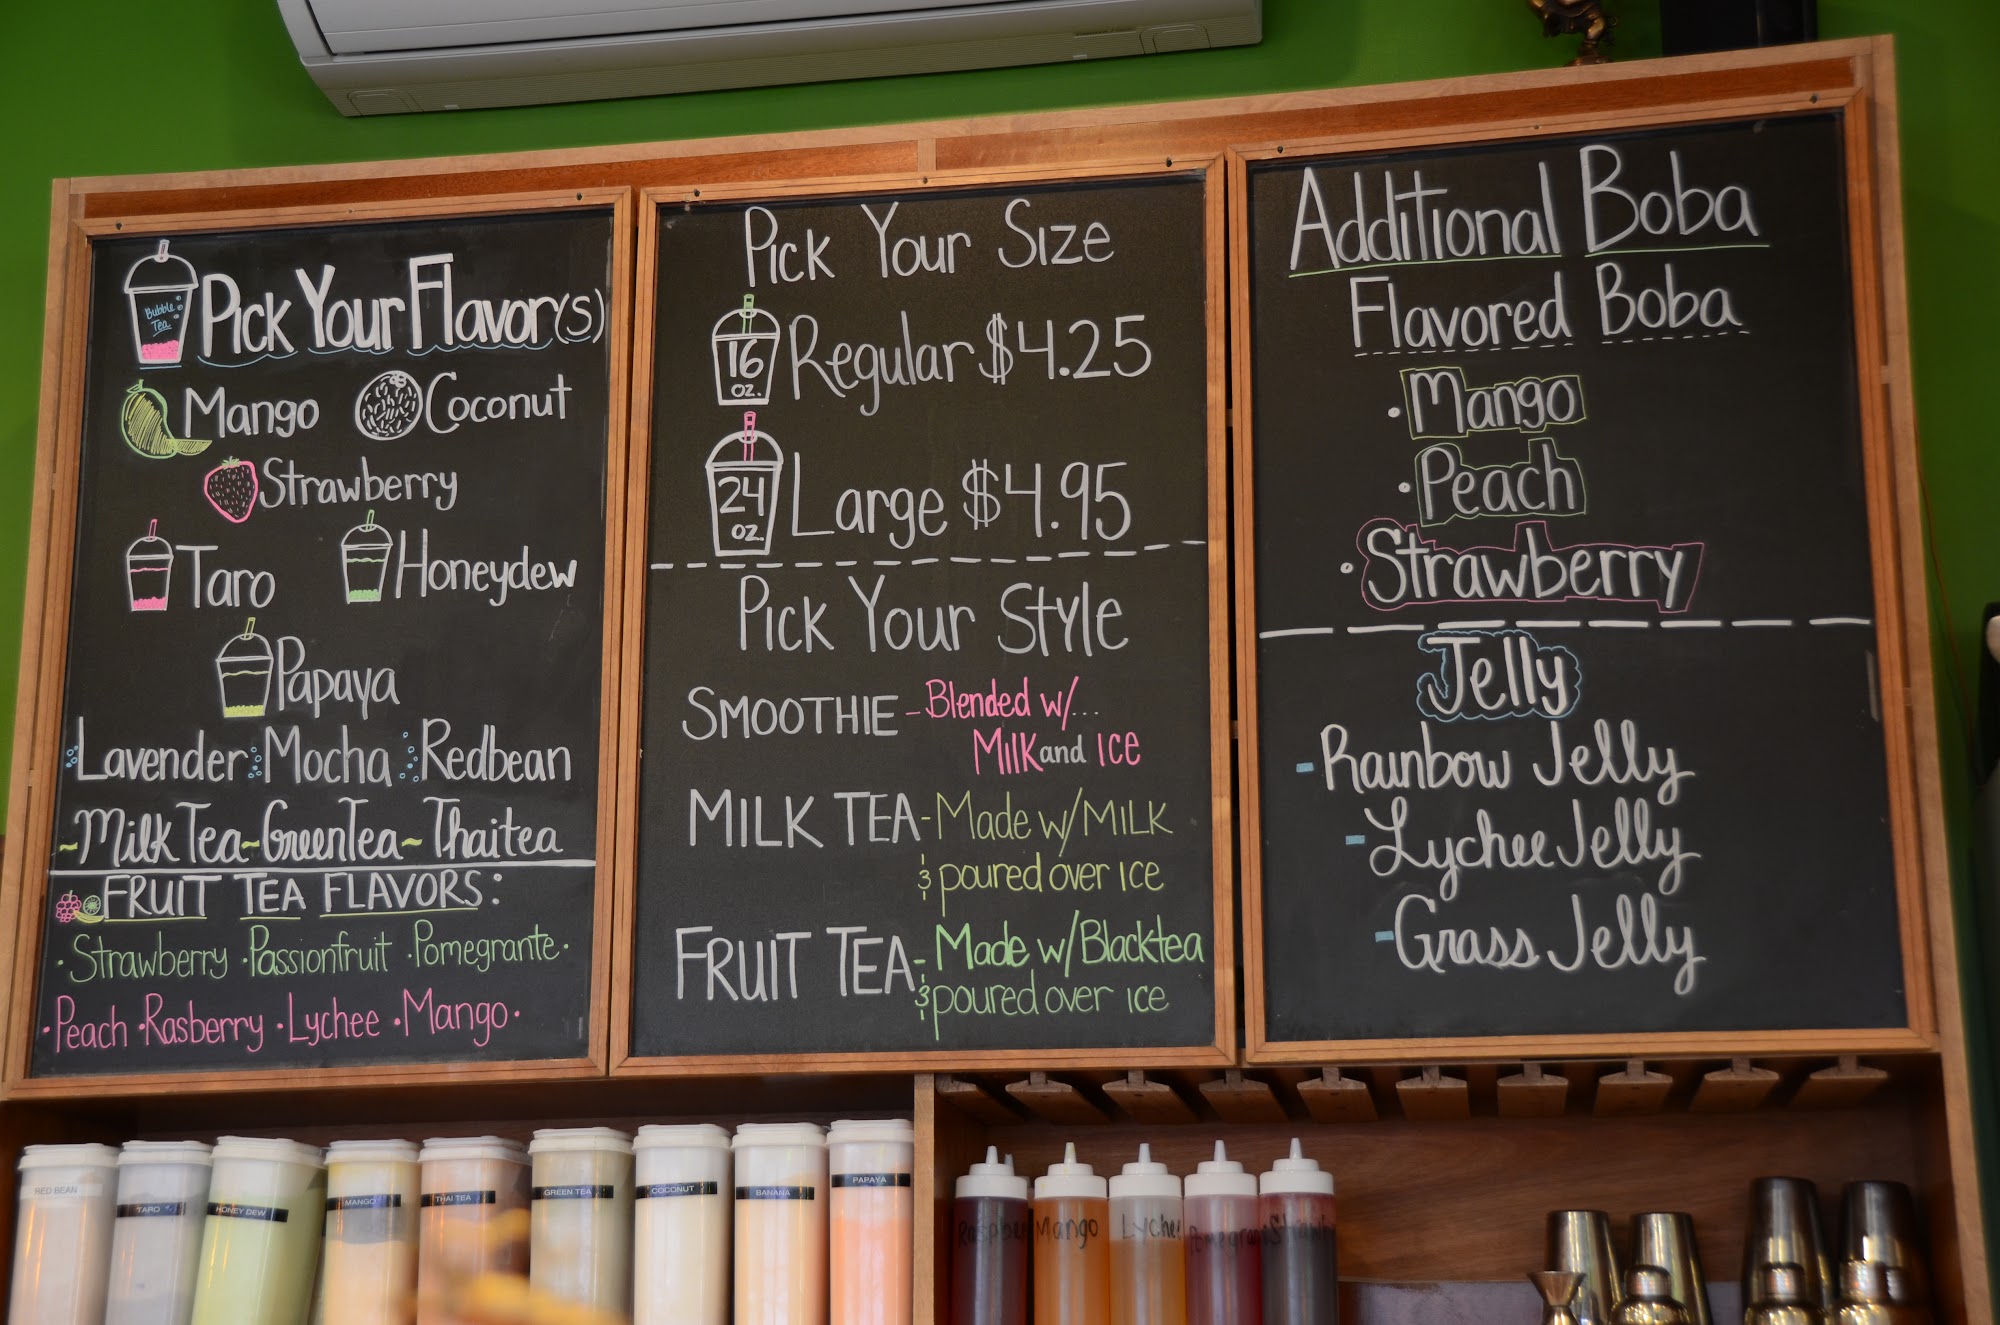 Bubble
Tea
Pick Your Flavor(s)
Mango Coconut
Strawberry
Taro Honeydew
Papaya
Lavender Mocha Redbean
~Milk Tea~GreenTea~Thaitea
FRUIT TEA FLAVORS:
·Strawberry ·Passionfruit ·Pomegrante·
·Peach ·Rasberry ·Lychee ·Mango·
Pick Your Size
16 oz. Regular $4.25
24 oz. Large $4.95
Pick Your Style
SMOOTHIE - Blended w/...
Milk and ICE
MILK TEA - Made w/MILK
& poured over ice
FRUIT TEA - Made w/Blacktea
& poured over ice
Additional Boba
Flavored Boba
·Mango
·Peach
·Strawberry
Jelly
- Rainbow Jelly
- Lychee Jelly
- Grass Jelly
RED BEAN
TARO
HONEY DEW
MANGO
THAI TEA
GREEN TEA
COCONUT
BANANA
PAPAYA
Mango